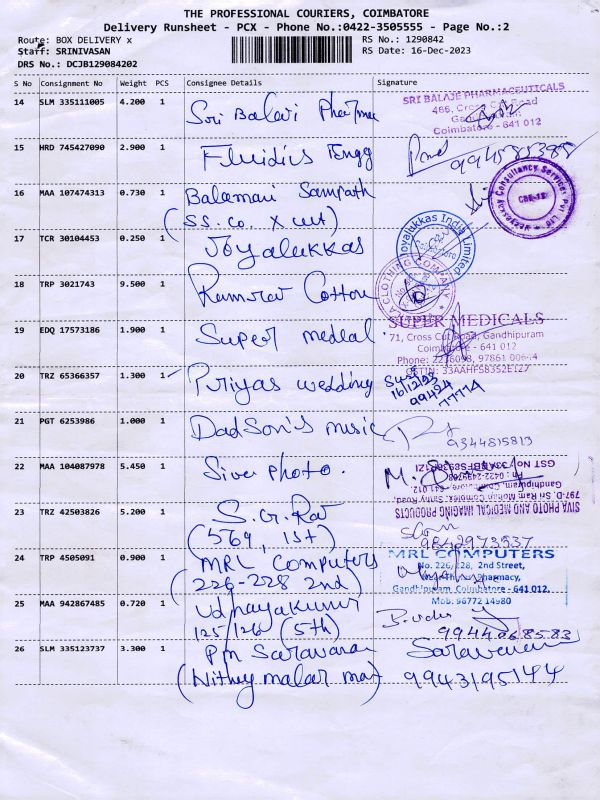 THE PROFESSIONAL COURIERS, COIMBATORE
Delivery Runsheet - PCX - Phone No.:0422-3505555 - Page No.:2
Route: BOX DELIVERY x
RS No.: 1290842
Staff: SRINIVASAN
RS Date: 16-Dec-2023
DRS No.: DCJB129084202
S No Consignment No Weight PCS Consignee Details Signature
14 SLM 335111005 4.200 1 Sri Balaji Pharma
SRI BALAJE PHARMACEUTICALS
Coimbatore - 641 012
15 HRD 745427090 2.900 1 Fluidis Engg
16 MAA 107474313 0.730 1 Balamani Sampath
(SS. Co. X cut)
17 TCR 30104453 0.250 1 Joyalukkas
Joyalukkas India Limited
18 TRP 3021743 9.500 1 Ramraj Cotton
19 EDQ 17573186 1.900 1 Super medical
SUPER MEDICALS
71, Cross Cut Road, Gandhipuram
Coimbatore - 641 012
20 TRZ 65366357 1.300 1 Priyas wedding
16/12/23
99424
77774
21 PGT 6253986 1.000 1 Dadson's music
9344815813
22 MAA 104087978 5.450 1 Siva Photo.
SIVA PHOTO AND MEDICAL IMAGING PRODUCTS
23 TRZ 42503826 5.200 1 S.G. Rav
(569, 1st)
9842973537
24 TRP 4505091 0.900 1 MRL Computers
(226-228 2nd)
MRL COMPUTERS
No. 226/228, 2nd Street,
Gandhipuram, Coimbatore - 641 012.
Mob: 96772 14980
25 MAA 942867485 0.720 1 Udhayakumar
125/126 (5th)
26 SLM 335123737 3.300 1 Pm Saravanan
(Nithy malar mat)
Saravanan
9943195144